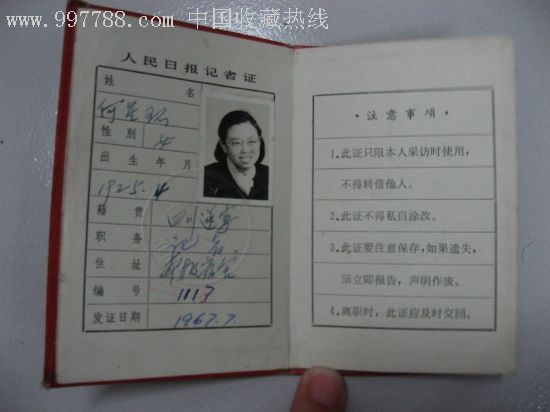 www.997788.com 中国收藏热线
人民日报记者证
姓 名
性 别 女
出 生 年 月
1925.4
籍 贯 四川
职 务 记者
住 址
编 号 1117
发证日期 1967.7.
·注意事项·
1.此证只限本人采访时使用，
不得转借他人。
2.此证不得私自涂改。
3.此证要注意保存，如果遗失，
须立即报告，声明作废。
4.离职时，此证应及时交回。